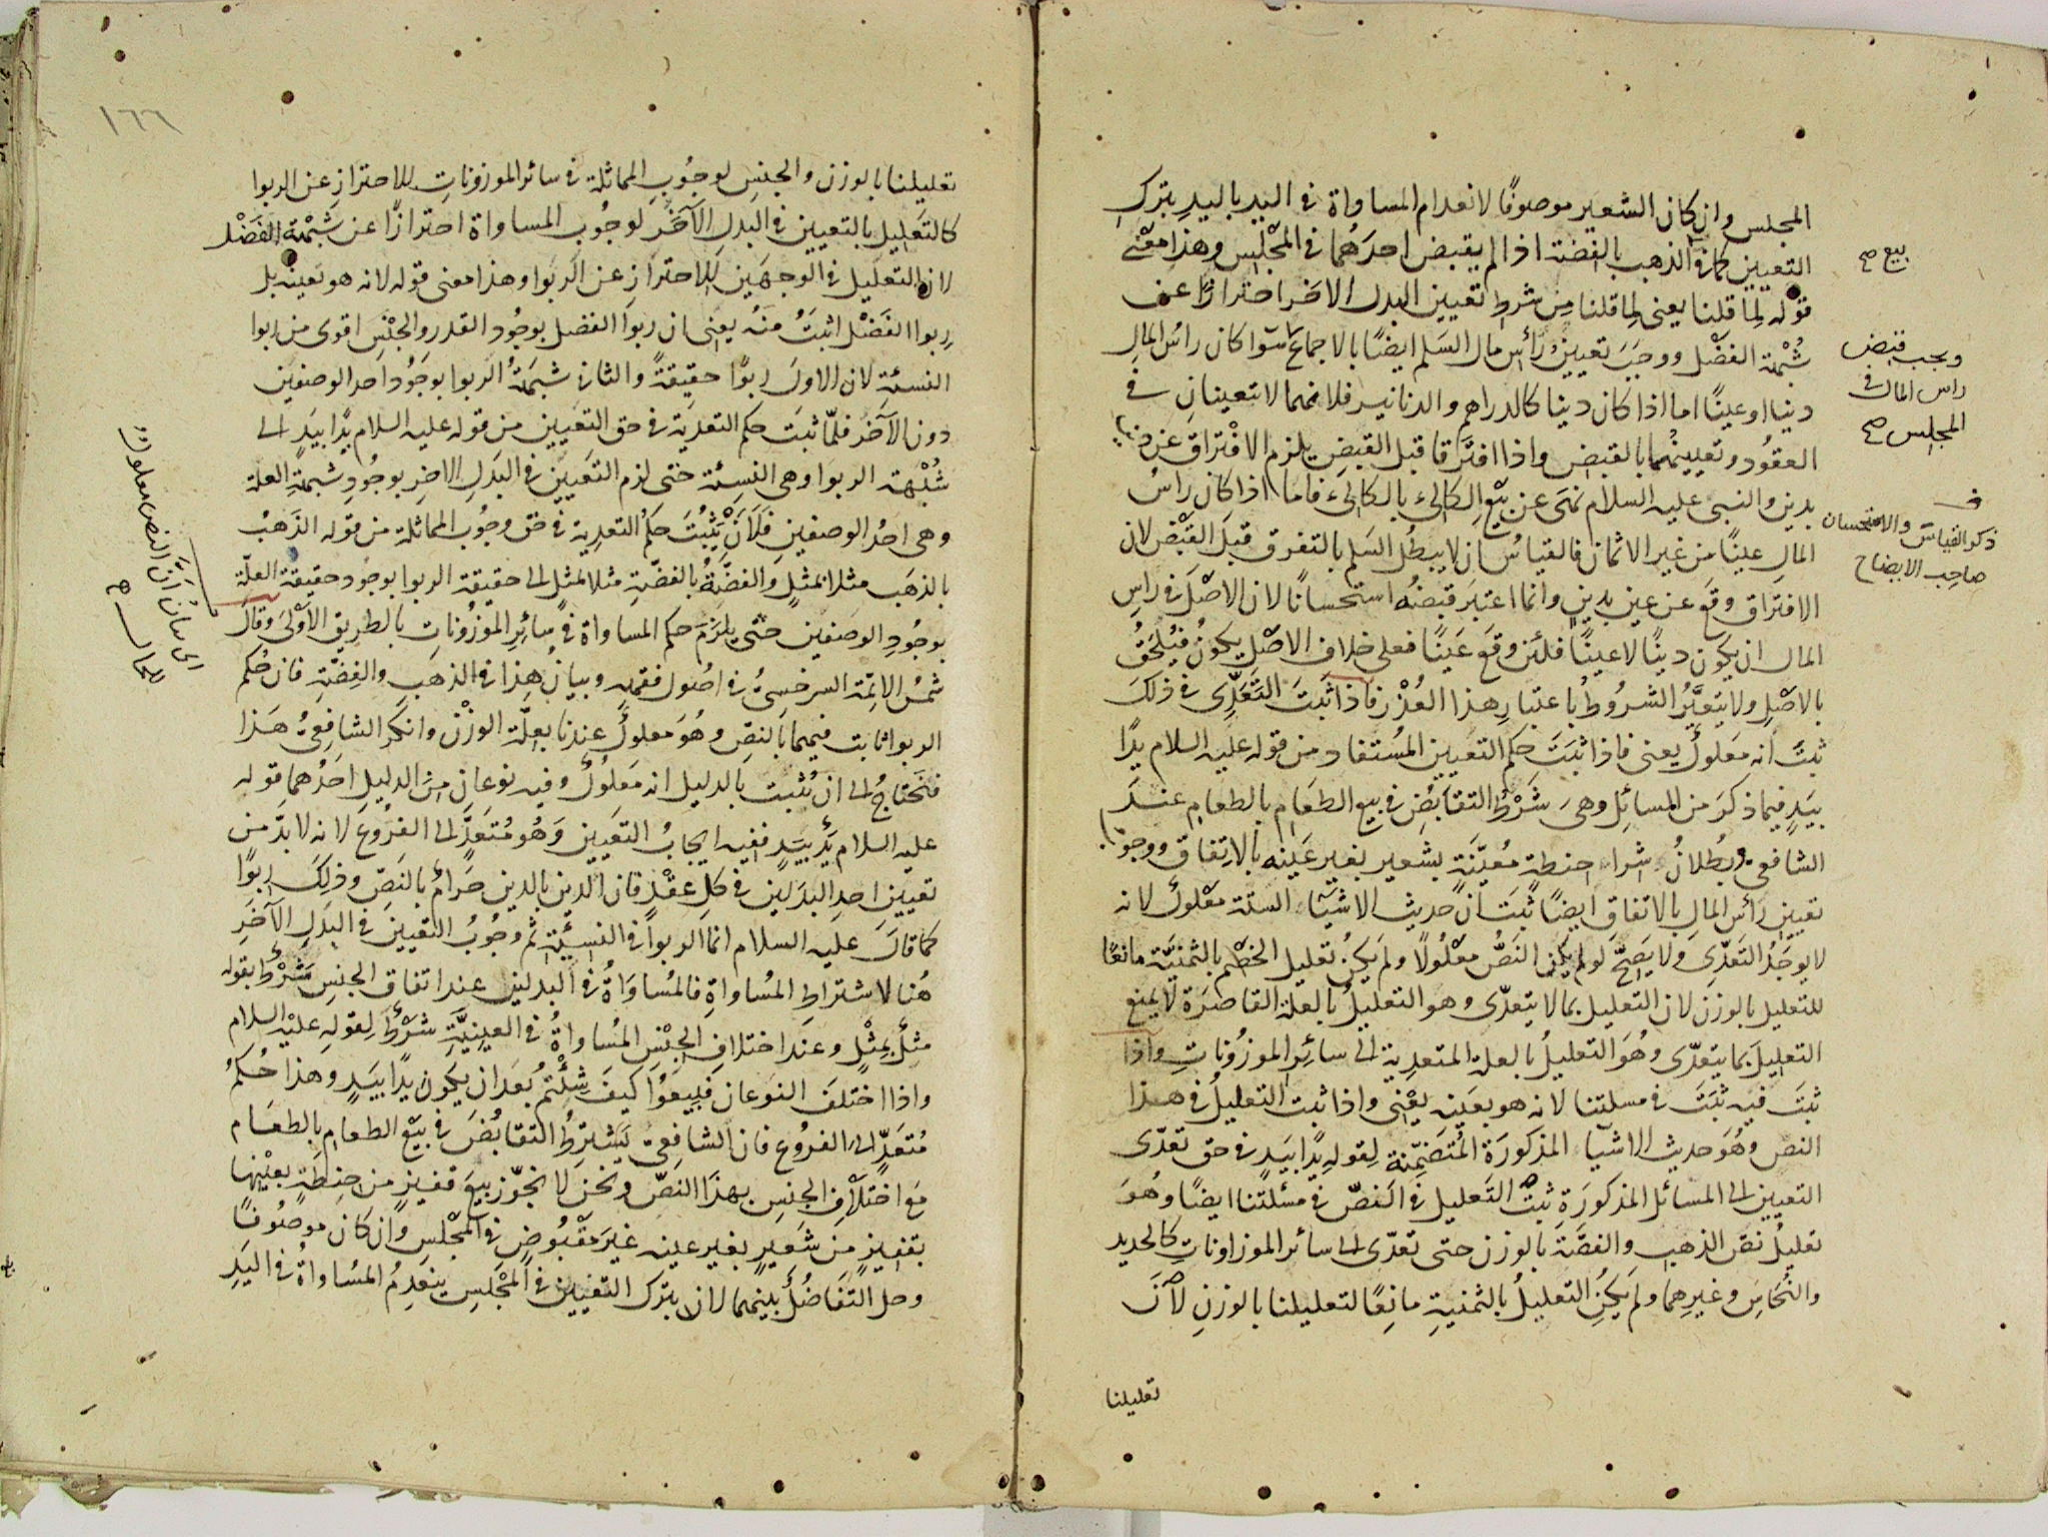 المجلس وان كان الشعير موصوفًا لانعدام المساواة في اليد باليد بترك
التعيين كما في الذهب بالفضة اذا لم يقبض احدهما في المجلس وهذا معنى
قوله لما قلنا يعنى لما قلنا من شرط تعيين البدل الاخر احترازًا عن
شبهة الفضل ووجب تعيين رأس مال السلم ايضًا بالاجماع سوا كان راس المال
دينا او عينًا اما اذا كان دينا كالدراهم والدنانير فلانهما لا تتعينان في
العقود وتعيينهما بالقبض واذا افترقا قبل القبض يلزم الافتراق عن دين
بدين والنبى عليه السلام نهى عن بيع الكالئ بالكالئ فاما اذا كان راس
المال عينًا من غير الاثمان فالقياس ان لا يبطل السلم بالتفرق قبل القبض لان
الافتراق وقع عن عين بدين وانما اعتبر قبضه استحسانًا لان الاصل في راس
المال ان يكون دينًا لا عينًا فلئن وقع عينًا فعلى خلاف الاصل يكون فيلحق
بالاصل ولا يتغير الشروط باعتبار هذا العذر فاذا ثبت التعدى في ذلك
ثبت انه معلول يعنى فاذا ثبت حكم التعيين المستفاد من قوله عليه السلام يدًا
بيد فيما ذكر من المسائل وهى شرط التقابض في بيع الطعام بالطعام عند
الشافعى وبطلان شراء حنطة معينة بشعير بغير عينه بالاتفاق ووجوب
تعيين رأس المال بالاتفاق ايضًا ثبت ان حديث الاشياء الستة معلول لانه
لا يوجد التعدى ولا يصح لو لم يكن النص معلولًا ولم يكن تعليل الخصم بالثمنية مانعًا
للتعليل بالوزن لان التعليل بما لا يتعدى وهو التعليل بالعلة القاصرة لا يمنع
التعليل بما يتعدى وهو التعليل بالعلة المتعدية الى سائر الموزونات واذا
ثبت فيه ثبت في مسلتنا لانه هو بعينه يعنى واذا ثبت التعليل في هذا
النص وهو حديث الاشيآء المذكورة المتضمنة لقوله يدًا بيد في حق تعدى
التعيين الى المسائل المذكورة ثبت التعليل في النص في مسئلتنا ايضًا وهو
تعليل نص الذهب والفضة بالوزن حتى تعدى الى سائر الموزاونات كالحديد
والنحاس وغيرهما ولم يكن التعليل بالثمنية مانعًا لتعليلنا بالوزن لان
تعليلنا
بيع صح
ويجب قبض
راس المال في
المجلس صح
ذكر القياس والاستحسان
صاحب الايضاح
١٦٦
تعليلنا بالوزن والجنس لوجوب المماثلة في سائر الموزونات للاحتراز عن الربوا
كالتعليل بالتعيين في البدل الآخر لوجوب المساواة احترازًا عن شبهة الفضل
لان التعليل في الوجهين للاحتراز عن الربوا وهذا معنى قوله لانه هو بعينه بل
ربوا الفضل اثبت منه يعنى ان ربوا الفضل بوجود القدر والجنس اقوى من ربوا
النسئة لان الاول ربوًا حقيقةً والثانى شبهة الربوا بوجود احد الوصفين
دون الآخر فلما ثبت حكم التعدية في حق التعيين من قوله عليه السلام يدًا بيد الى
شبهة الربوا وهى النسئة حتى لزم التعيين في البدل الاخر بوجود شبهة العلة
وهى احد الوصفين فلأن يثبت حكم التعدية في حق وجوب المماثلة من قوله الذهب
بالذهب مثلا بمثل والفضة بالفضة مثلا بمثل الى حقيقة الربوا بوجود حقيقة العلة
بوجود الوصفين حتى يلزم حكم المساواة في سائر الموزونات بالطريق الاولى وقال
شمس الائمة السرخسى في اصول فقهه وبيان هذا في الذهب والفضة فان حكم
الربوا ثابت فيهما بالنص وهو معلول عندنا بعلة الوزن وانكر الشافعى هذا
فنحتاج الى ان نثبت بالدليل انه معلول وفيه نوعان من الدليل احدهما قوله
عليه السلام يد بيد ففيه ايجاب التعيين وهو متعد الى الفروع لانه لا بد من
تعيين احد البدلين في كل عقد فان الدين بالدين حرام بالنص وذلك ربوًا
كما قال عليه السلام انما الربوا في النسيئة ثم وجوب التعيين في البدل الآخر
هنا لاشتراط المساواة فالمساواة في البدلين عند اتفاق الجنس شرط بقوله
مثل بمثل وعند اختلاف الجنس المساواة في العينية شرط لقوله عليه السلام
واذا اختلف النوعان فبيعوا كيف شئتم بعد ان يكون يدًا بيد وهذا حكم
متعد الى الفروع فان الشافعى يشترط التقابض في بيع الطعام بالطعام
مع اختلاف الجنس بهذا النص ونحن لا نجوز بيع قفيز من حنطة بعينها
بقفيز من شعير بغير عينه غير مقبوض في المجلس وان كان موصوفًا
وحل التفاضل بينهما لان بترك التعيين في المجلس ينعدم المساواة في اليد
اى بيان ان النص معلول
للحال